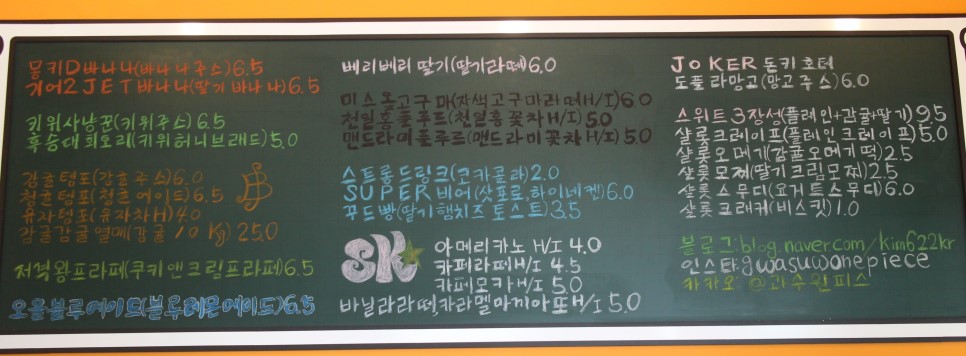 몽키D바나나(바나나주스)6.5
기어2JET바나나(딸기바나나)6.5
키위사냥꾼(키위주스)6.5
흑풍대회오리(키위허니브래드)5.0
감귤텀포(감귤주스)6.0
청귤텀포(청귤에이드)6.5
유자텀포(유자차H)4.0
감귤감귤열매(감귤10Kg)25.0
저격왕프라페(쿠키앤크림프라페)6.5
오올블루에이드(블루레몬에이드)6.5
베리베리 딸기(딸기라떼)6.0
미스 옺고구마(자색고구마라떼H/I)6.0
천일홍풀푸드(천일홍꽃차H/I)5.0
맨드라미풀루르(맨드라미꽃차H/I)5.0
스트롱드링크(코카콜라)2.0
SUPER비어(삿포로,하이네켄)6.0
꾸드빵(딸기햄치즈토스트)3.5
SK
아메리카노 H/I 4.0
카페라떼H/I 4.5
카페모카H/I 5.0
바닐라라떼,카라멜마끼아또H/I 5.0
JOKER 돈키호테
도플라망고(망고주스)6.0
스위트3장성(플레인+감귤+딸기)9.5
샬롯크레이프(플레인크레이프)5.0
샬롯오메기(감귤오메기떡)2.5
샬롯모찌(딸기크림모찌)2.5
샬롯스무디(요거트스무디)6.0
샬롯 크래커(비스킷)1.0
블로그:blog.naver.com/kim622kr
인스타:gwasuwonepiece
카카오 @과수원피스